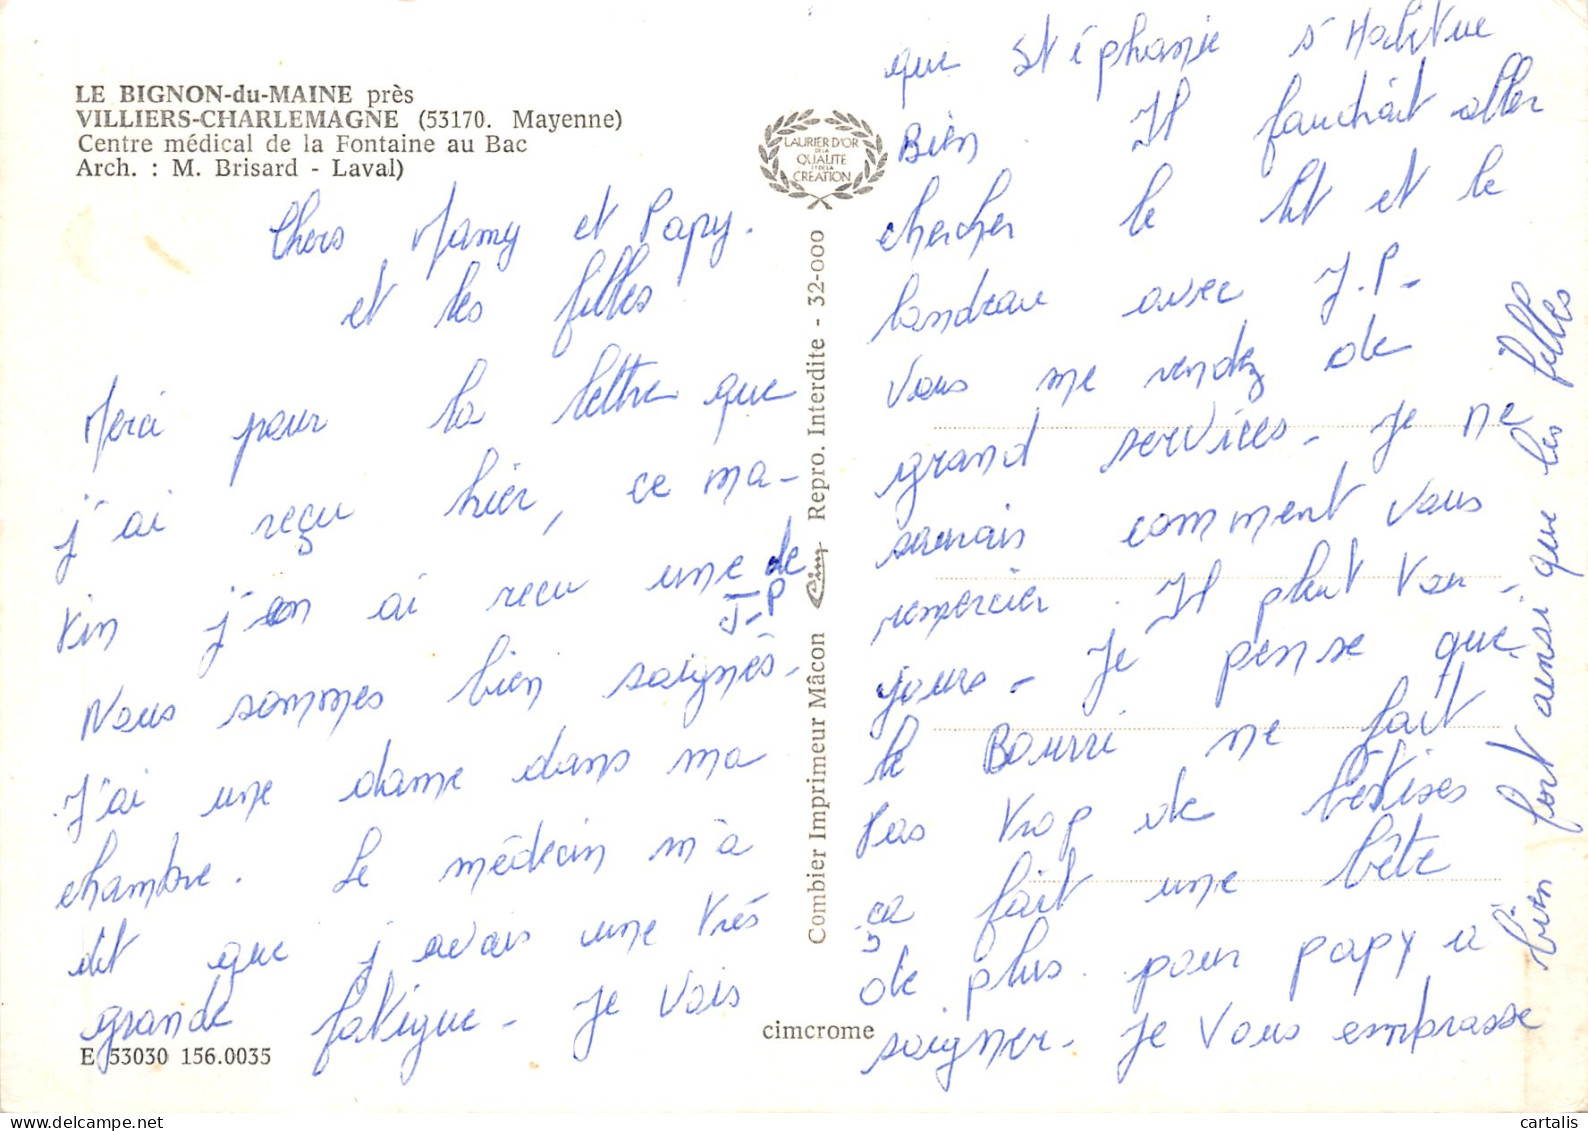 LE BIGNON-du-MAINE près
VILLIERS-CHARLEMAGNE (53170. Mayenne)
Centre médical de la Fontaine au Bac
Arch. : M. Brisard - Laval)
Chers Mamy et Papy.
et les filles
Merci pour la lettre que
j'ai reçu hier, ce ma-
tin j'en ai recu une de
J-P
Nous sommes bien soignés.
J'ai une dame dans ma
chambre. Le médecin m'a
dit que j'avais une très
grande fatigue - Je vais
E 53030 156.0035
LAURIER D'OR
DE LA
QUALITE
ET DE LA
CREATION
Combier Imprimeur Mâcon Cim Repro. Interdite - 32-000
cimcrome
que Stéphanie s'Habitue
Bien. Il faudrait aller
chercher le lit et le
landeau avec J.P-
Vous me rendez de
grand services - Je ne
saurais comment vous
remercier. Il pleut tou-
jours - Je pense que
le Bourri ne fait
Pas trop de bêtises
ça fait une bête
de plus pour papy a
soigner - Je vous embrasse
bien fort ainsi que les filles
cartalis